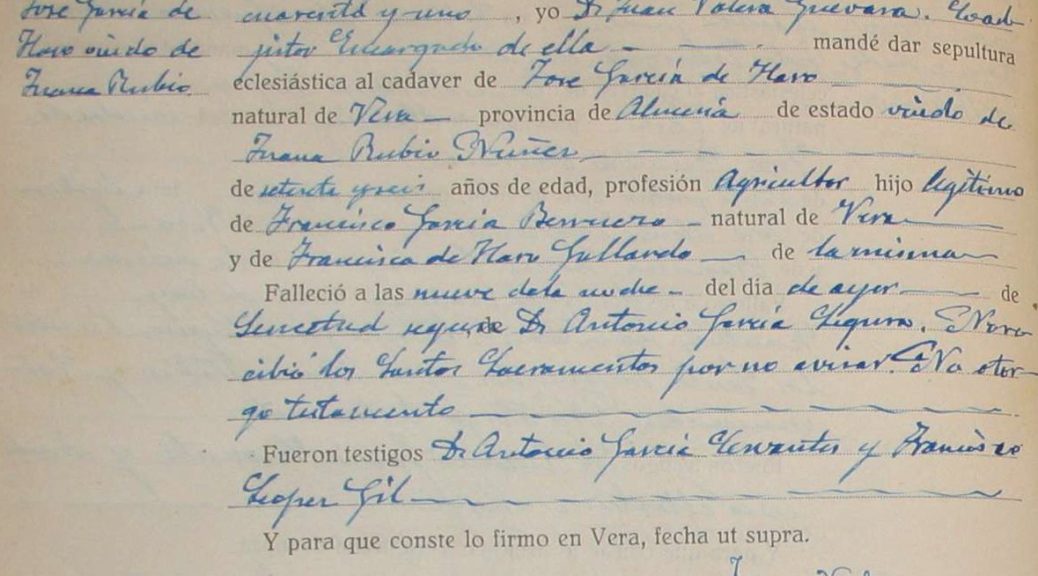 José García de
Haro viudo de
Juana Rubio
cuarenta y uno, yo D. Juan Valera Guevara. Coad-
jutor Encargado de ella mandé dar sepultura
eclesiástica al cadaver de José García de Haro
natural de Vera provincia de Almería de estado viudo de
Juana Rubio Núñez
de setenta y seis años de edad, profesión Agricultor hijo legítimo
de Francisco García Berruezo natural de Vera
y de Francisca de Haro Gallardo de la misma
Falleció a las nueve de la noche del día de ayer de
Senectud según D. Antonio García Segura. No re-
cibió los Santos Sacramentos por no avisar. No otor-
go testamento
Fueron testigos D. Antonio García Cervantes y Francisco
Lopez Gil
Y para que conste lo firmo en Vera, fecha ut supra.